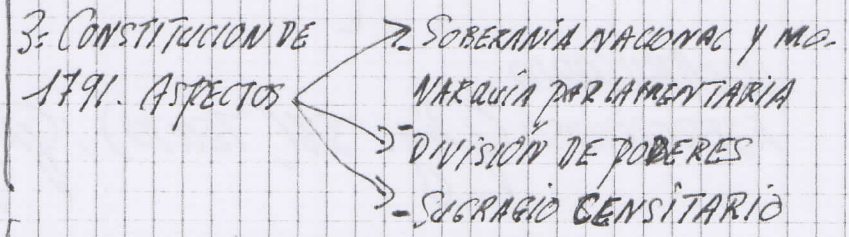 3- CONSTITUCION DE
1791. ASPECTOS
- SOBERANÍA NACIONAL Y MO-
NARQUÍA PARLAMENTARIA
- DIVISIÓN DE PODERES
- SUFRAGIO CENSITARIO